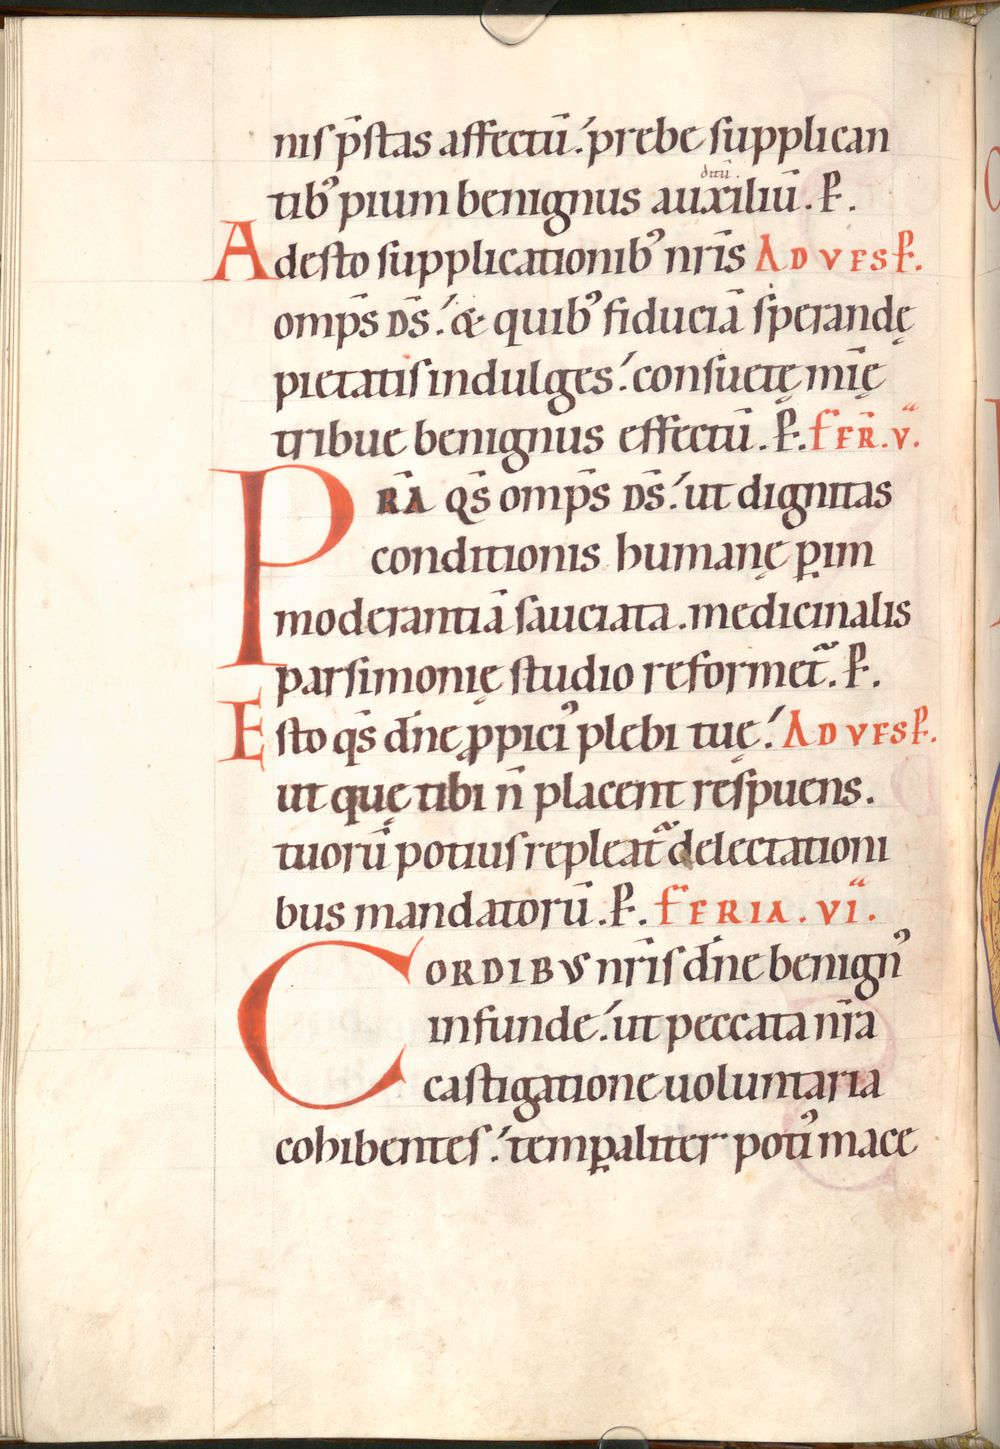 nis p̄stas affectū. prebe supplican
ditū.
tibꝰ pium benignus auxiliū. P̱.
Adesto supplicationibꝰ nr̄is AD VESP̱.
omp̄s DS̄. & quibꝰ fiduciā sperandę
pietatis indulges. consuetę mīę
tribue benignus effectū. P̱. FER̄. V.
PRĀ QS̄ omp̄s DS̄. ut dignitas
conditionis humanę ꝑ im
moderantiā sauciata. medicinalis
parsimonię studio reformet᷑. P̱.
Esto qs̄ dn̄e ꝓpiciꝰ plebi tuę. AD VESP̱.
ut quę tibi n̄ placent respuens.
tuorū potius repleat᷑ delectationi
bus mandatorū. P̱. FERIA. VI.
CORDIBVS nr̄is dn̄e benignꝰ
infunde. ut peccata nr̄a
castigatione uoluntaria
cohibentes. temꝑaliter potiꝰ mace